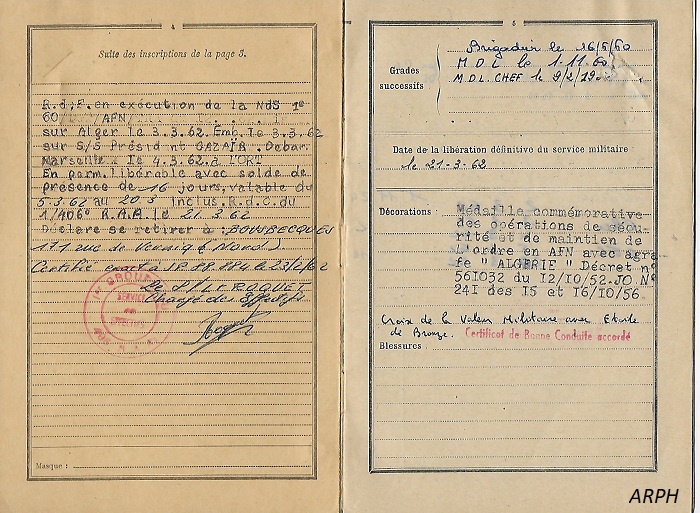 4
Suite des inscriptions de la page 3.
R.d;F.en exécution de la NdS 1e
60 /AFN/
sur Alger le 3.3.62.Emb.le 3.3.62
sur S/S Président CAZAÏR .Debar.
Marseille. le 4.3.62.à l'ORT
En perm.libérable avec solde de
présence de 16 jours,valable du
5.3.62 au 20.3 inclus.R.d.C.du
1/406° R.A.A.le 21.3.62
Déclare se retirer à :BOUSBECQUES
rue de (Nord).
Certifié exact à le 23/2/62
Le S/Lt ROQUET
Chargé des Effectifs
1er GROUPE
SERVICE
Masque :
5
Grades
successifs
Brigadier le 16/5/60
M D L le 1.11.60
M.D.L. CHEF le 9/2/
Date de la libération définitive du service militaire
le 21-3-62
Décorations :
Médaille commémorative
des opérations de sécu-
rité et de maintien de
l'ordre en AFN avec agra-
fe " ALGERIE " Décret n°
561032 du 12/10/52.JO N°
241 des 15 et 16/10/56.
Croix de la Valeur Militaire avec Etoile
de Bronze. Certificat de Bonne Conduite accordé
Blessures :
ARPH